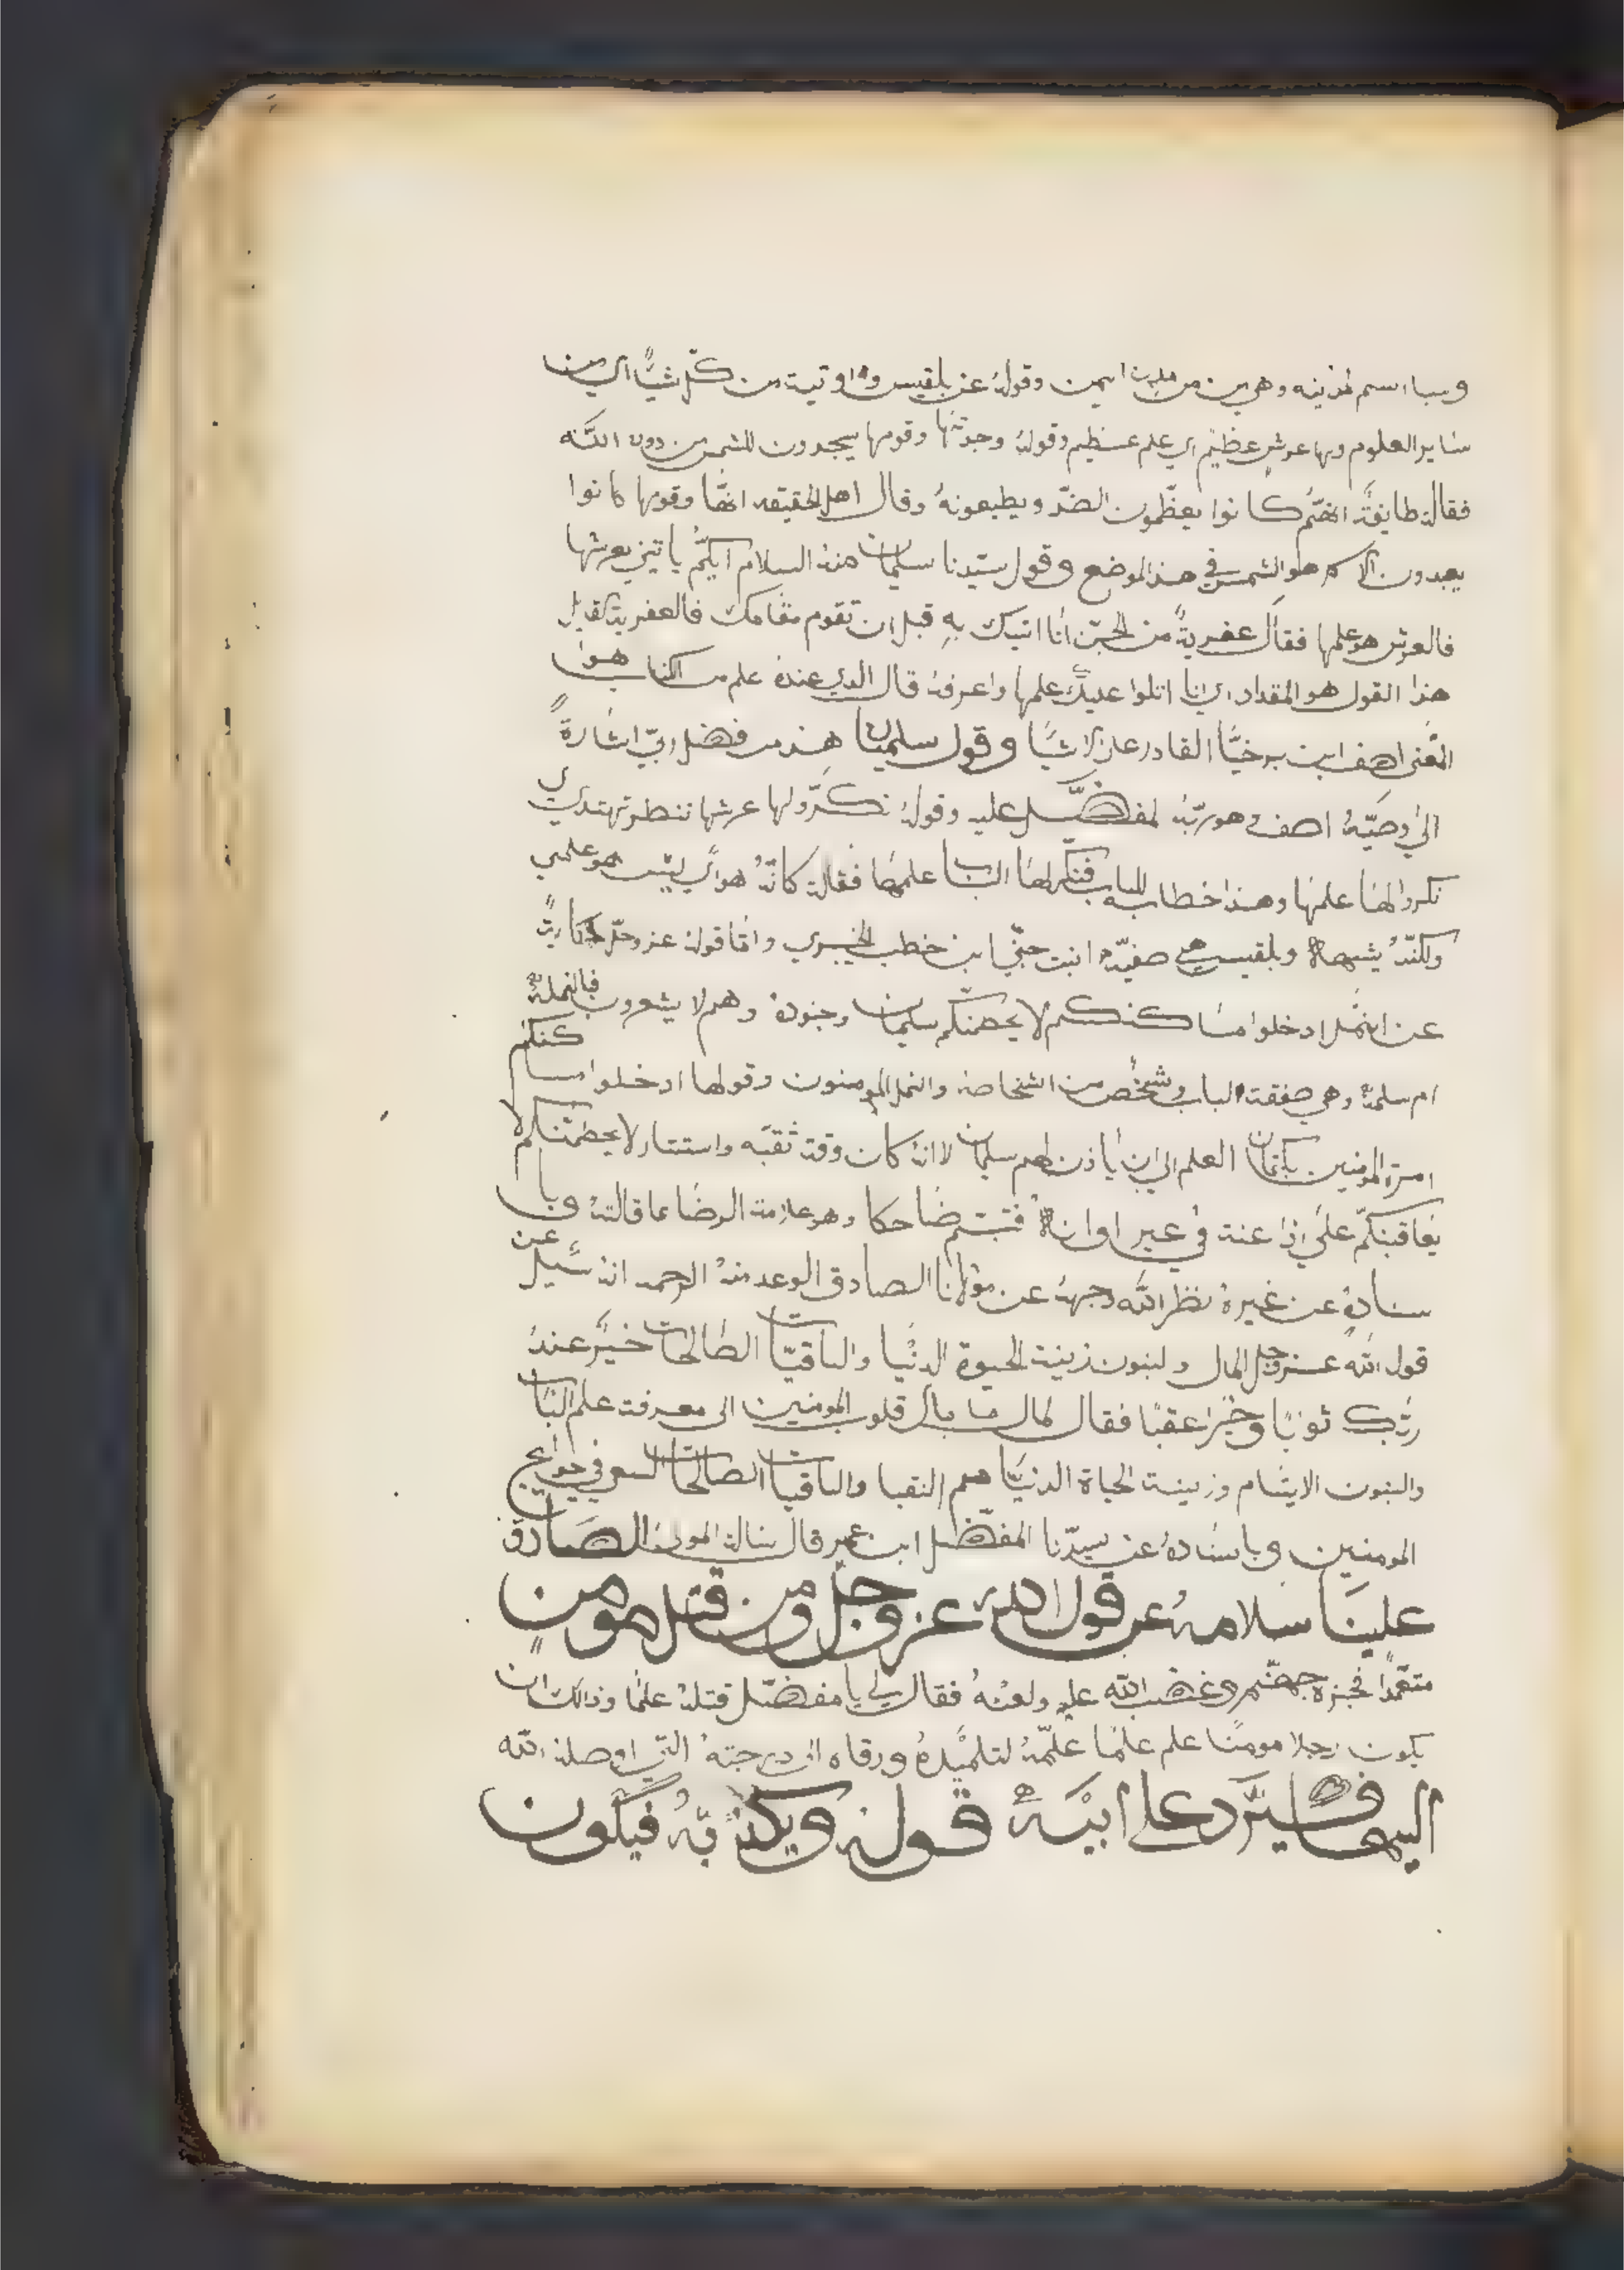 وسبا اسم لمدينه وهي من مدين اليمن وقولهُ عن بلقيس واوتية من كلّ شيًّا اي من
ساير العلوم ولها عرش عظيم اي علم عظيم وقولهُ وجدتها وقومها يسجدون للشمس من دون اللّه
فقالة طايفةً انهّم كانوا يعظّمون الضدّ ويطيعونهُ وقال اهل الحقيقه انهّا وقومها كانوا
يعبدون هو الشمس في هذا الموضع وقول سيّدنا سليمان منهُ السلام ايكمُّ ياتيني بعرشها
فالعرش هو علمها فقال عفريةً من الجنّ انا اتيك بهِ قبل ان تقوم مقامك فالعفرية القايل
هذا القول هو المقداد اي انا اتلوا عليك علمها واعرفهُ قال الدي عندهُ علم من الكتاب هو
المعنى اصف ابن برخيّا القادر على الاشيّا وقول سليمان هذا من فضل ربّي اشارةً
الي وصيّهُ اصف وهو ربّهُ لمفضّل عليه وقولهُ نكرّولها عرشها ننطر تهتدي
نكروا لها علمها وهذا خطاب للباب فنكر لها الباب علمها فقالة كانّهُ هو اي ليس هو علمي
ولكنّهُ يشبهها وبلقيس هي صفيّه ابنت حيّي ابن خطب الخيبري وامّا قولهُ عز وجلّ حكايةً
عن النمل ادخلوا مساكنكم لا يحطمنكّم سليمان وجنودهُ وهم لا يشعرون فالنملة
ام سلمة وهي صفقة الباب وشخص من اشخاصهُ والنمل المومنون وقولها ادخلوا مساكنكم
امرة المومنين بكتمان العلم الي ان ياذن لهم سليمان لانهُ كان وقة تقيّه واستتار لا يحطمنكم لا
يعاقبنكّم علي اذاعتة في غير اوانهُ فتبسّم ضاحكا وهو علامة الرضا بما قالتهُ وبا
سنادهُ عن غيرهُ نظر اللّه وجههُ عن مولانا الصادق الوعد منهُ الرحمه انهُ سُيل عن
قول اللّه عز وجل المال ولبنون زينة الحيوة الدنّيا والباقيات الصّالحات خيرٌ عند
ربّك ثوبًا وخيرًا عقبًا فقال لمال ما مال قلوب المومنين الى معرفة علم الباب
والبنون الايتام وزينة الحياة الدنيّا هم النقبا والباقيات الصالحات السعي في حوايج
المومنين وباسنادهُ عن سيدّنا المفضّل ابن عمر قال سالة المولى الصادق
علينا سلامهُ عن قول اللّه عز وجل ومن قتل مومن
متعمّدًا فجزه جهنّم وغضب اللّه عليهِ ولعنهُ فقال لي يا مفضّل قتلهُ علمًا وذالك ان
يكون رجلا مومنًا علم علمًا علّمهُ لتلميّدهُ ورقاه الى درجتهُ التّي اوصلهُ اللّه
اليها فيرّد علا ابيّه قولهُ ويكذبّهُ فيكون